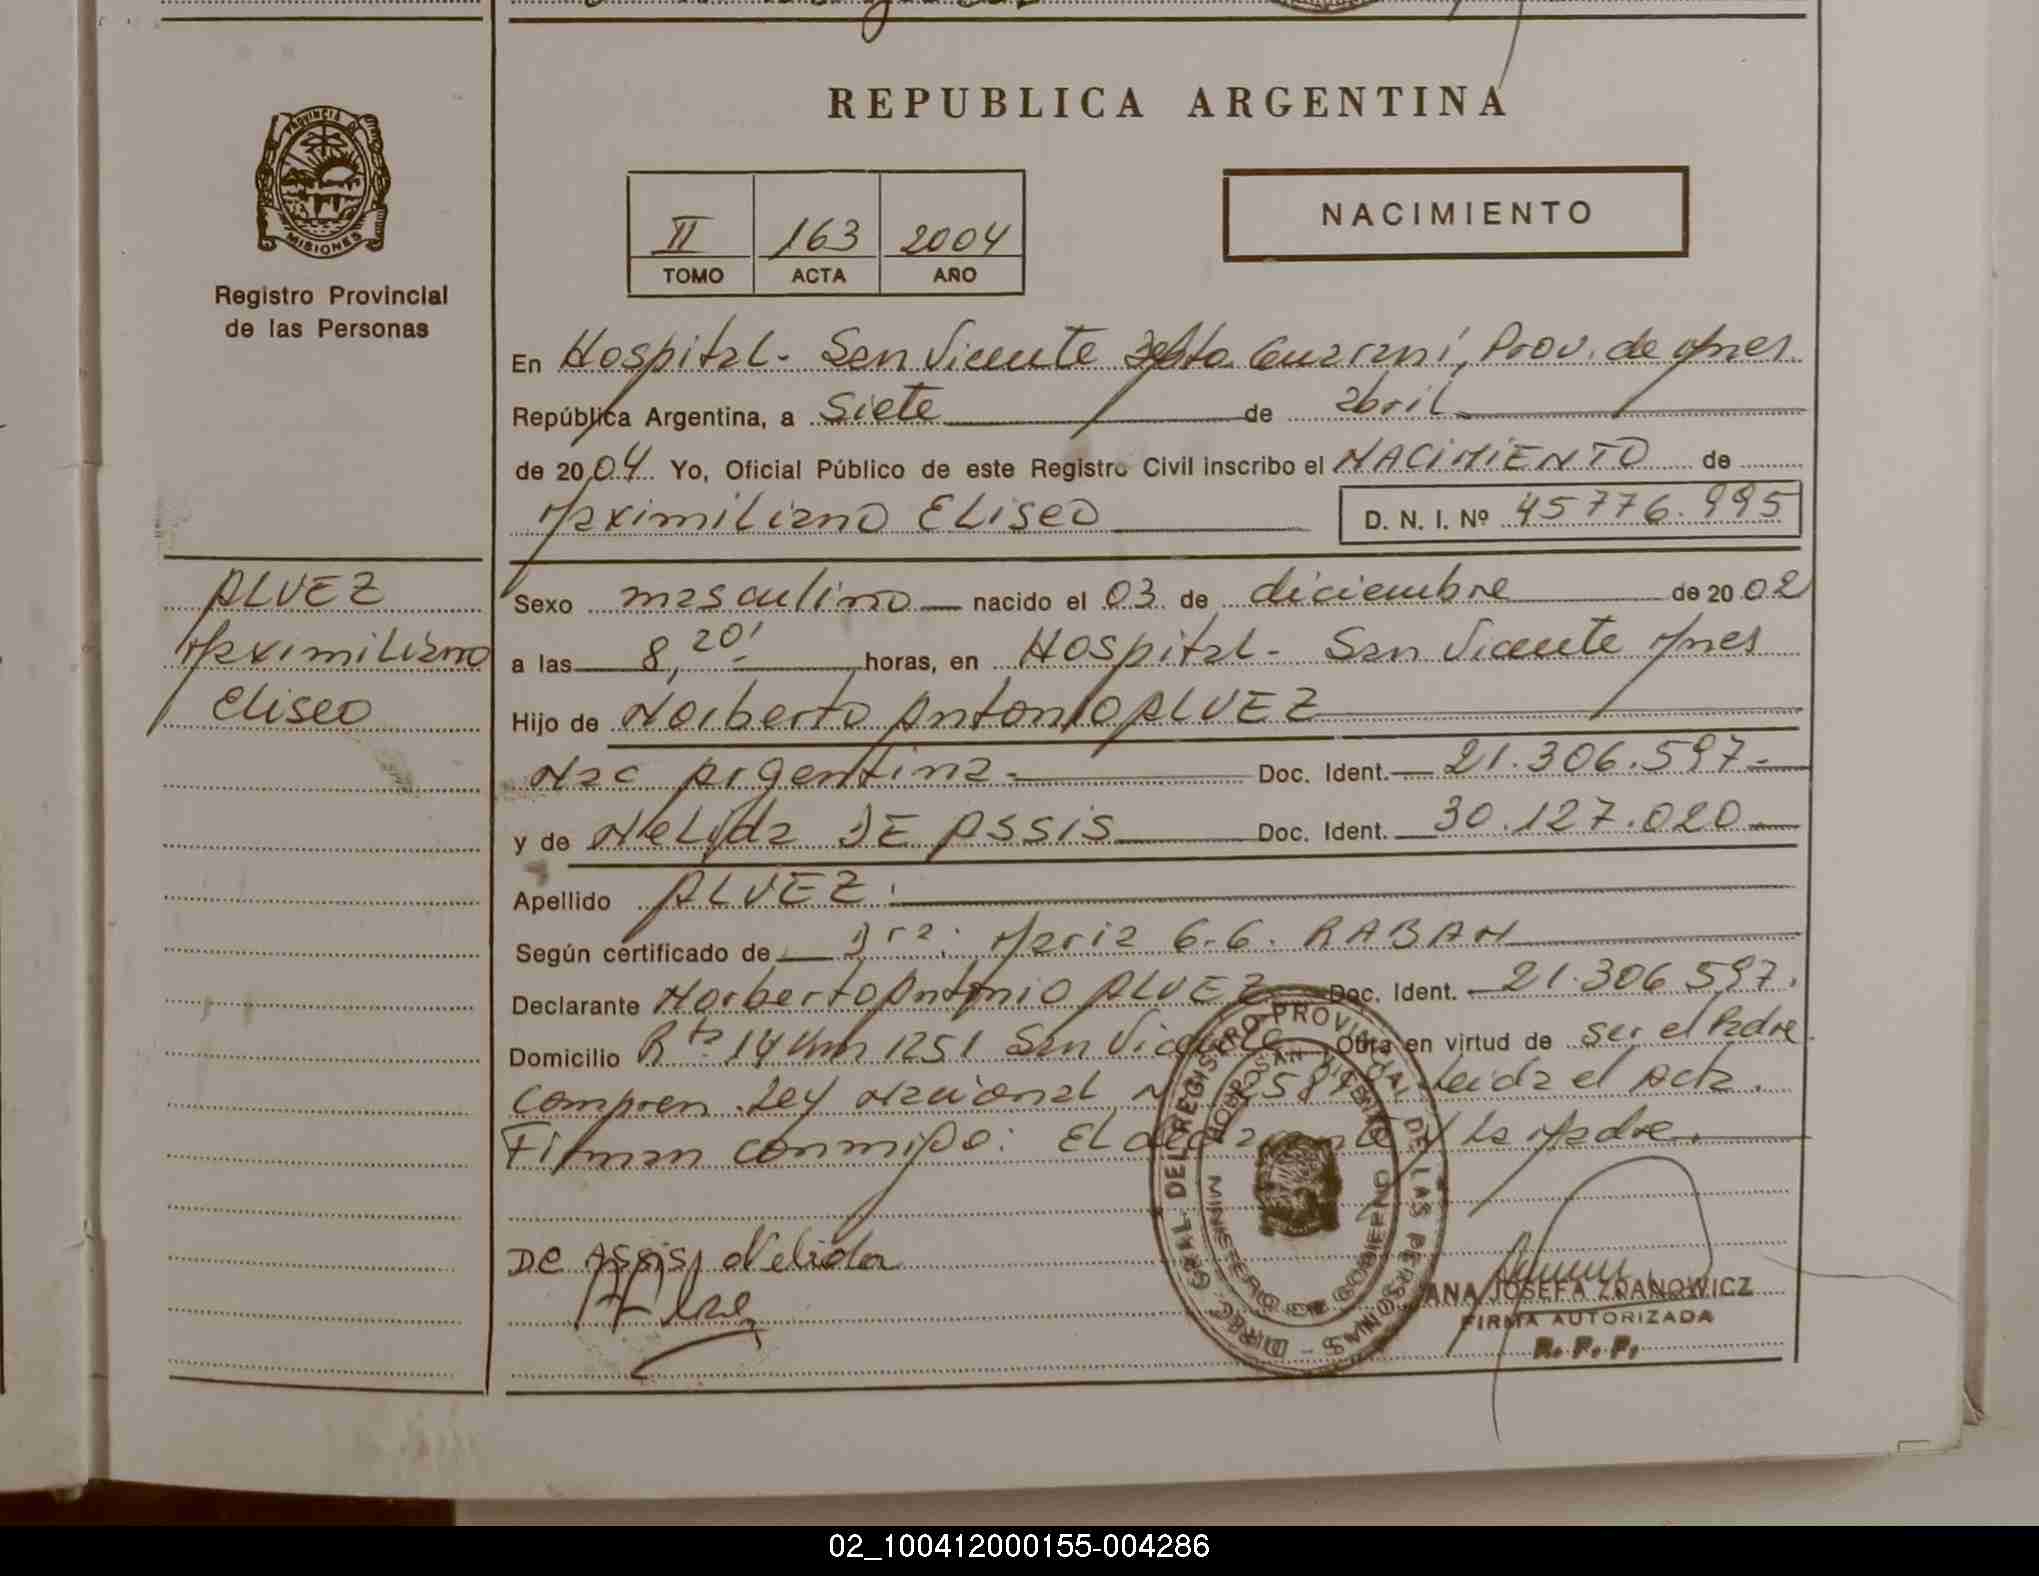 REPUBLICA ARGENTINA
PROVINCIA DE
MISIONES
Registro Provincial
de las Personas
II 163 2004
TOMO ACTA AÑO
NACIMIENTO
En Hospital - San Vicente Dpto. Guarani, Prov. de Mnes.
República Argentina, a Siete de abril
de 2004 Yo, Oficial Público de este Registro Civil inscribo el NACIMIENTO de
Maximiliano Eliseo D. N. I. Nº 45776.995
ALVEZ
Maximiliano
Eliseo
Sexo masculino nacido el 03 de diciembre de 2002
a las 8,20' horas, en Hospital - San Vicente Mnes
Hijo de Norberto Antonio ALVEZ
Nac Argentina - Doc. Ident. 21.306.597 -
y de Nelida DE ASSIS Doc. Ident. 30.127.020 -
Apellido ALVEZ.
Según certificado de Dra: Maria G. G. RABAN
Declarante Norberto Antonio ALVEZ Doc. Ident. 21.306.597.
Domicilio Rta 14 Km 1251 San Vicente Obra en virtud de ser el Padre
Compren Ley Nacional Leida el Acta.
Firman conmigo: El declarante y la Madre.
De Assis, Nelida
DIREC. GRAL. DEL REGISTRO PROVINCIAL DE LAS PERSONAS -
MINISTERIO DE GOBIERNO
ANA JOSEFA ZDANOWICZ
FIRMA AUTORIZADA
R. P. P.
02_100412000155-004286